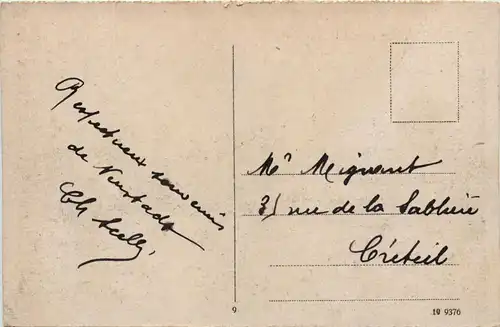 Respectueux souvenirs
de Neustadt
Ch
Mr Mignant
31 rue de la Sablière
Créteil
9
9376